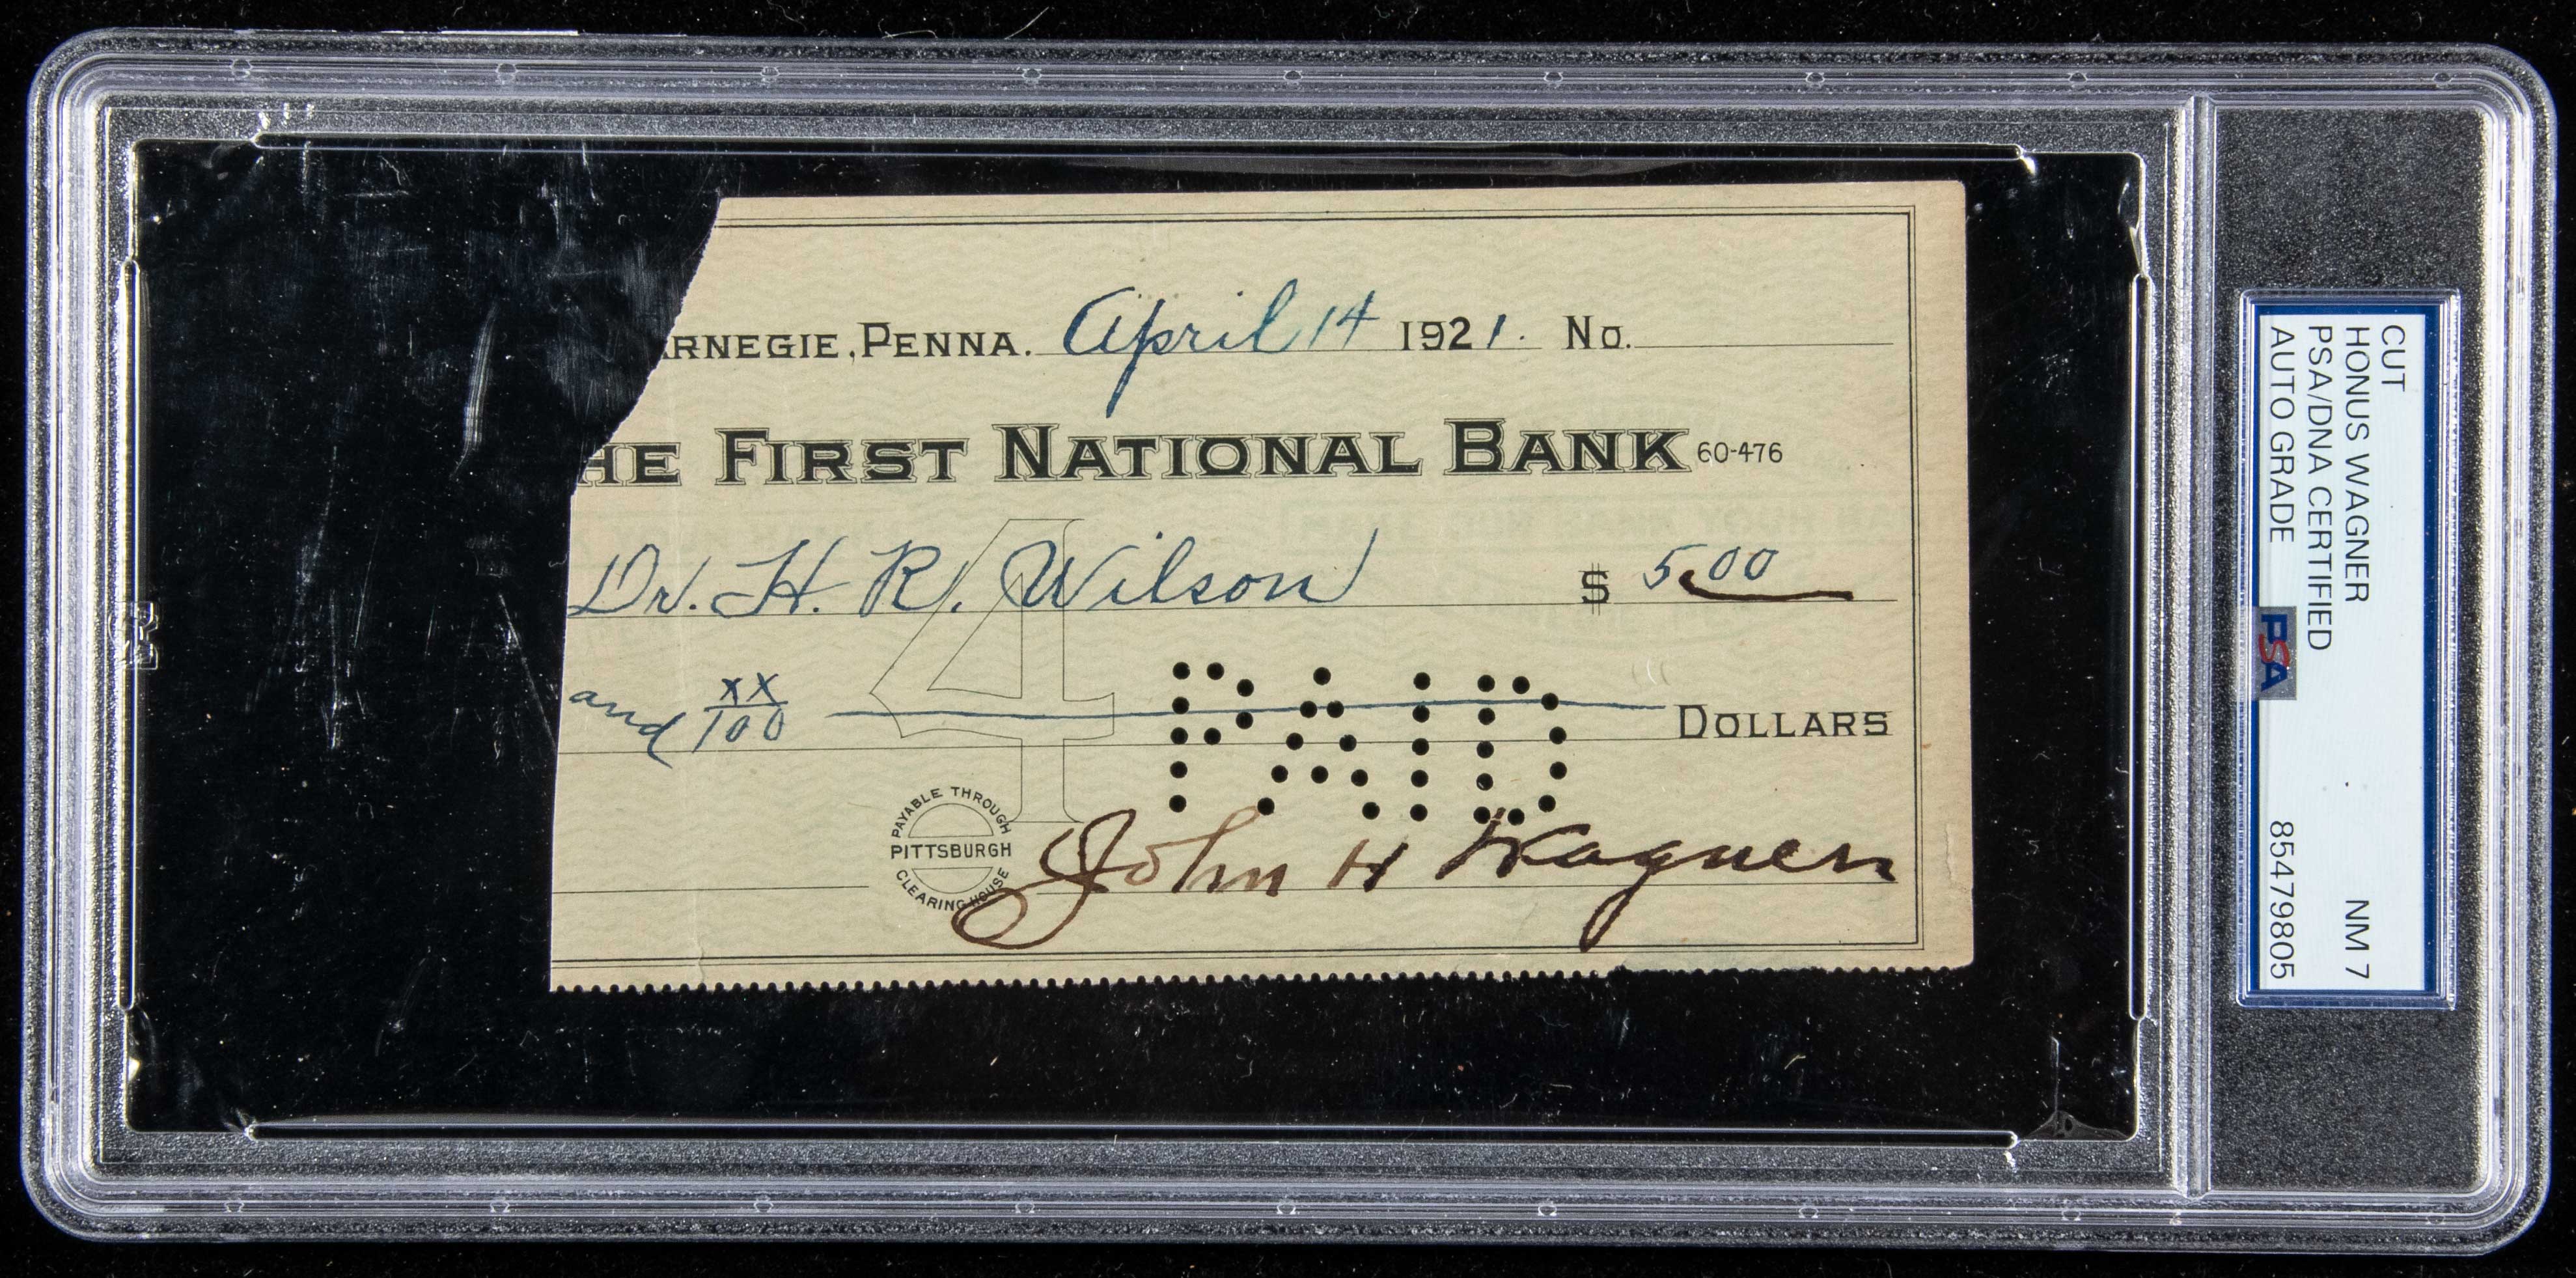 RNEGIE, PENNA. April 14 1921. No.
HE FIRST NATIONAL BANK 60-476
Dr. H. R. Wilson $ 5.00
and xx/100 DOLLARS
4
PAID
PAYABLE THROUGH
PITTSBURGH
CLEARING HOUSE
John H Wagner
CUT
HONUS WAGNER NM 7
PSA/DNA CERTIFIED
AUTO GRADE 85479805
PSA